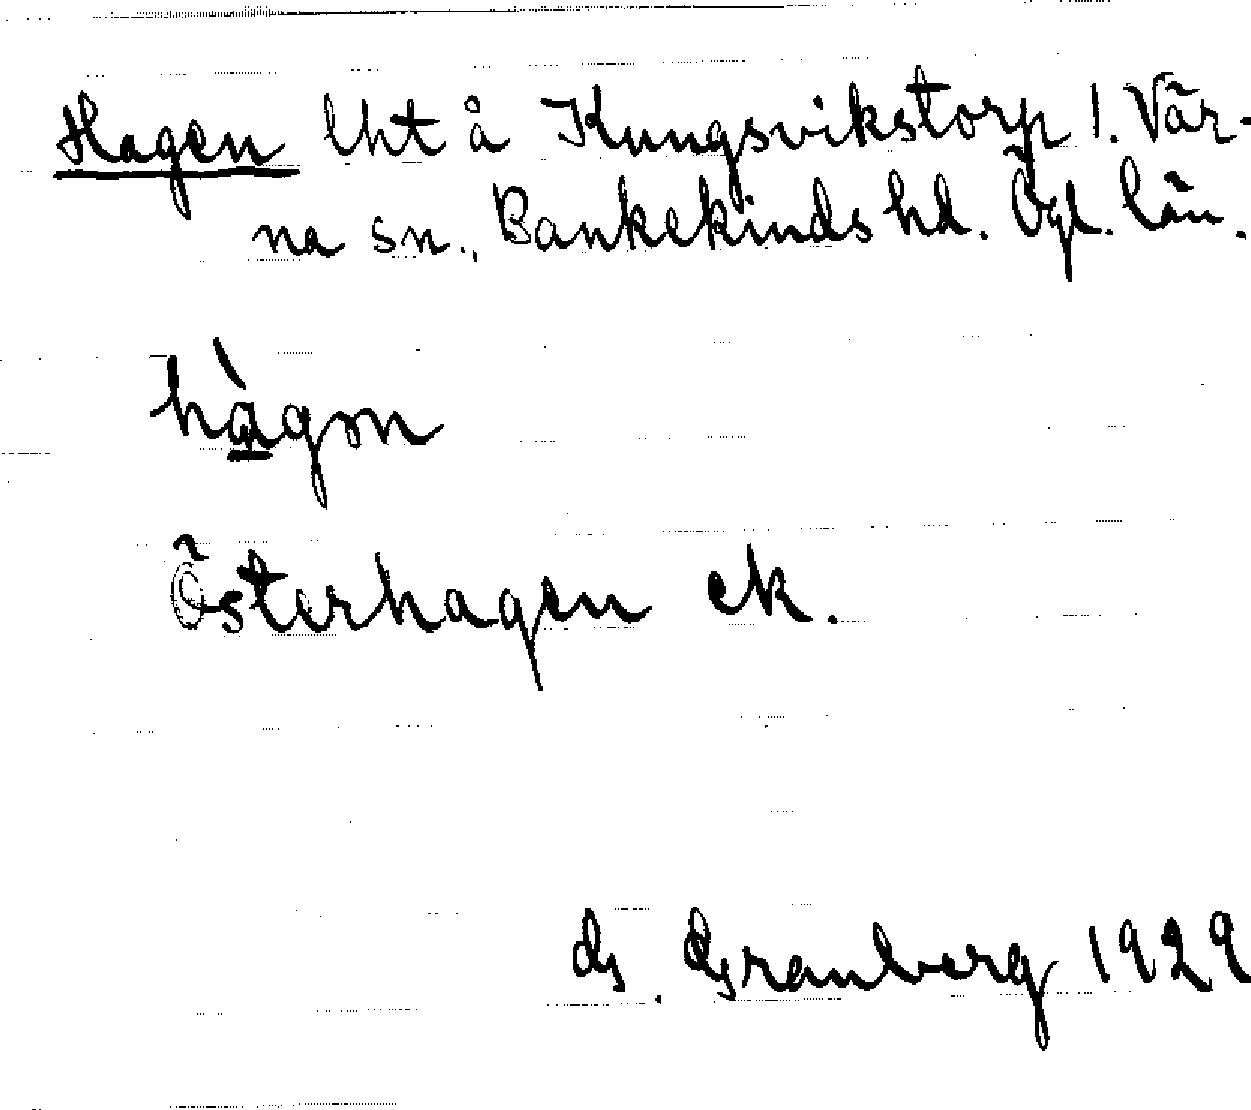 Hagen lht å Kungsvikstorp 1. Vär-
na sn., Bankekinds hd. Ögl. län.
hàgən
Österhagen ek.
G. Granberg 1929